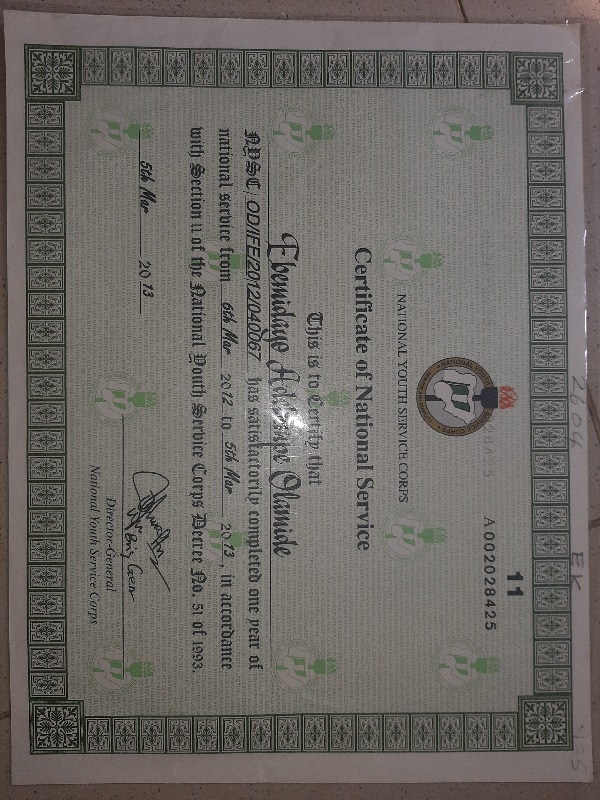 2604 EK
11
A 002028425
NATIONAL YOUTH SERVICE CORPS
Certificate of National Service
This is to Certify that
Ebemidayo Olamide
NYSC/ OD/IFE/2012/040067 has satisfactorily completed one year of
national service from 6th Mar 2012 to 5th Mar 2013, in accordance
with Section 11 of the National Youth Service Corps Decree No. 51 of 1993.
5th Mar 2013
Brig Gen
Director-General
National Youth Service Corps